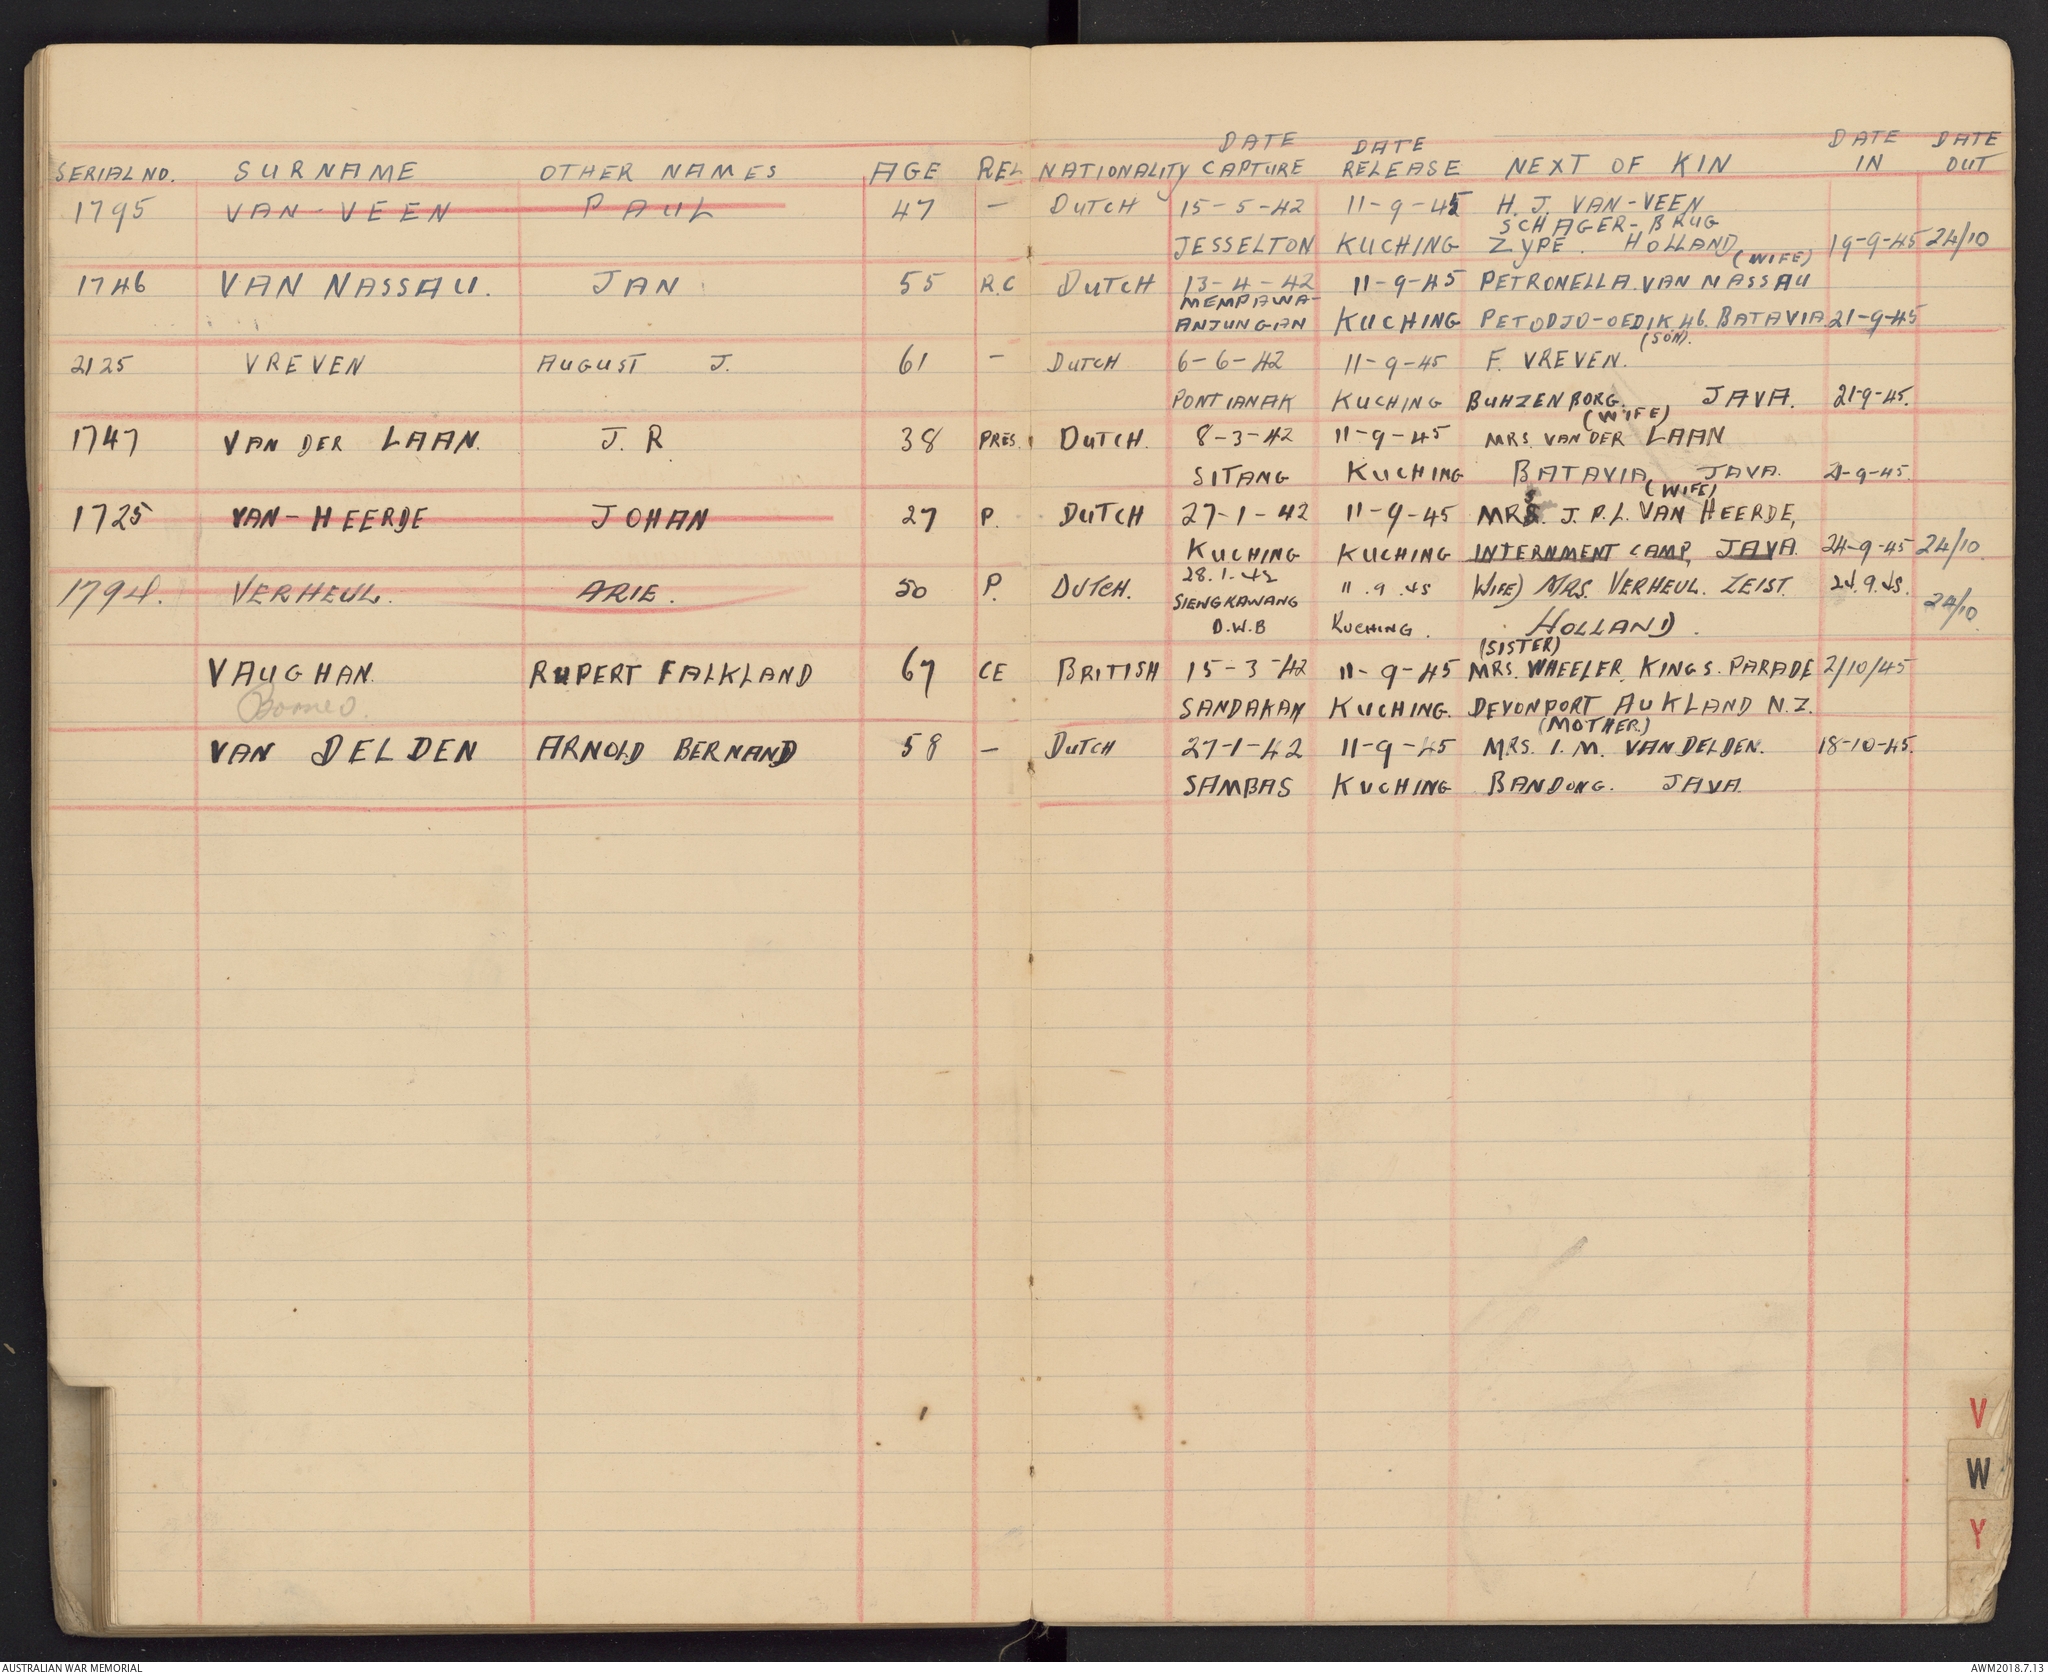 DATE DATE DATE DATE
SERIAL NO. SURNAME OTHER NAMES AGE REL NATIONALITY CAPTURE RELEASE NEXT OF KIN IN OUT
1795 VAN-VEEN PAUL 47 — DUTCH 15-5-42 11-9-45 H. J. VAN-VEEN
SCHAGER-BRUG
JESSELTON KUCHING ZYPE. HOLLAND 19-9-45 24/10
(WIFE)
1746 VAN NASSAU. JAN 55 R.C DUTCH 13-4-42 11-9-45 PETRONELLA VAN NASSAU
MEMPAWA-
ANJUNGAN KUCHING PETODJO-OEDIK 46. BATAVIA 21-9-45
(SON).
2125 VREVEN AUGUST J. 61 — DUTCH 6-6-42 11-9-45 F. VREVEN.
PONTIANAK KUCHING BUHZENBORG. JAVA. 21-9-45.
(WIFE)
1747 VAN DER LAAN. J. R. 38 PRES. DUTCH. 8-3-42 11-9-45 MRS VAN DER LAAN
SITANG KUCHING BATAVIA JAVA. 21-9-45.
(WIFE)
1725 VAN-HEERDE JOHAN 27 P. DUTCH 27-1-42 11-9-45 MRS. J. P. L. VAN HEERDE,
KUCHING KUCHING INTERNMENT CAMP, JAVA. 24-9-45 24/10
1794. VERHEUL. ARIE. 50 P. DUTCH. 28.1.42 11.9.45 WIFE) MRS. VERHEUL. ZEIST. 24.9.45.
SIENGKAWANG 24/10
D.W.B KUCHING. HOLLAND.
(SISTER)
VAUGHAN. RUPERT FALKLAND 67 CE BRITISH 15-3-42 11-9-45 MRS. WHEELER, KINGS. PARADE 2/10/45
Borneo. SANDAKAN KUCHING. DEVONPORT AUKLAND N.Z.
(MOTHER)
VAN DELDEN ARNOLD BERNAND 58 — DUTCH 27-1-42 11-9-45 MRS. I. M. VAN DELDEN. 18-10-45.
SAMBAS KUCHING BANDONG. JAVA.
V
W
Y
AUSTRALIAN WAR MEMORIAL AWM2018.7.13